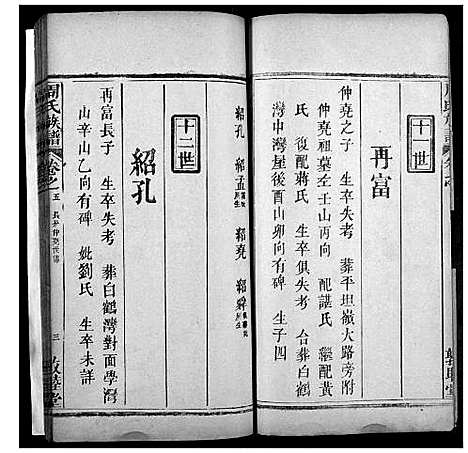 十一世
再富
仲堯之子 生卒失考 葬平坦嶺大路旁附
仲堯祖墓左壬山丙向 配諶氏 繼配黃
氏 復配蔣氏 生卒俱失考 合葬白鶴
灣中灣屋後酉山卯向有碑 生子四
紹孔 紹孟 紹堯 紹舜
十二世
紹孔
再富長子 生卒失考 葬白鶴灣對面學灣
山辛山乙向有碑 妣劉氏 生卒未詳
周氏族譜 卷之五 三 敦睦堂